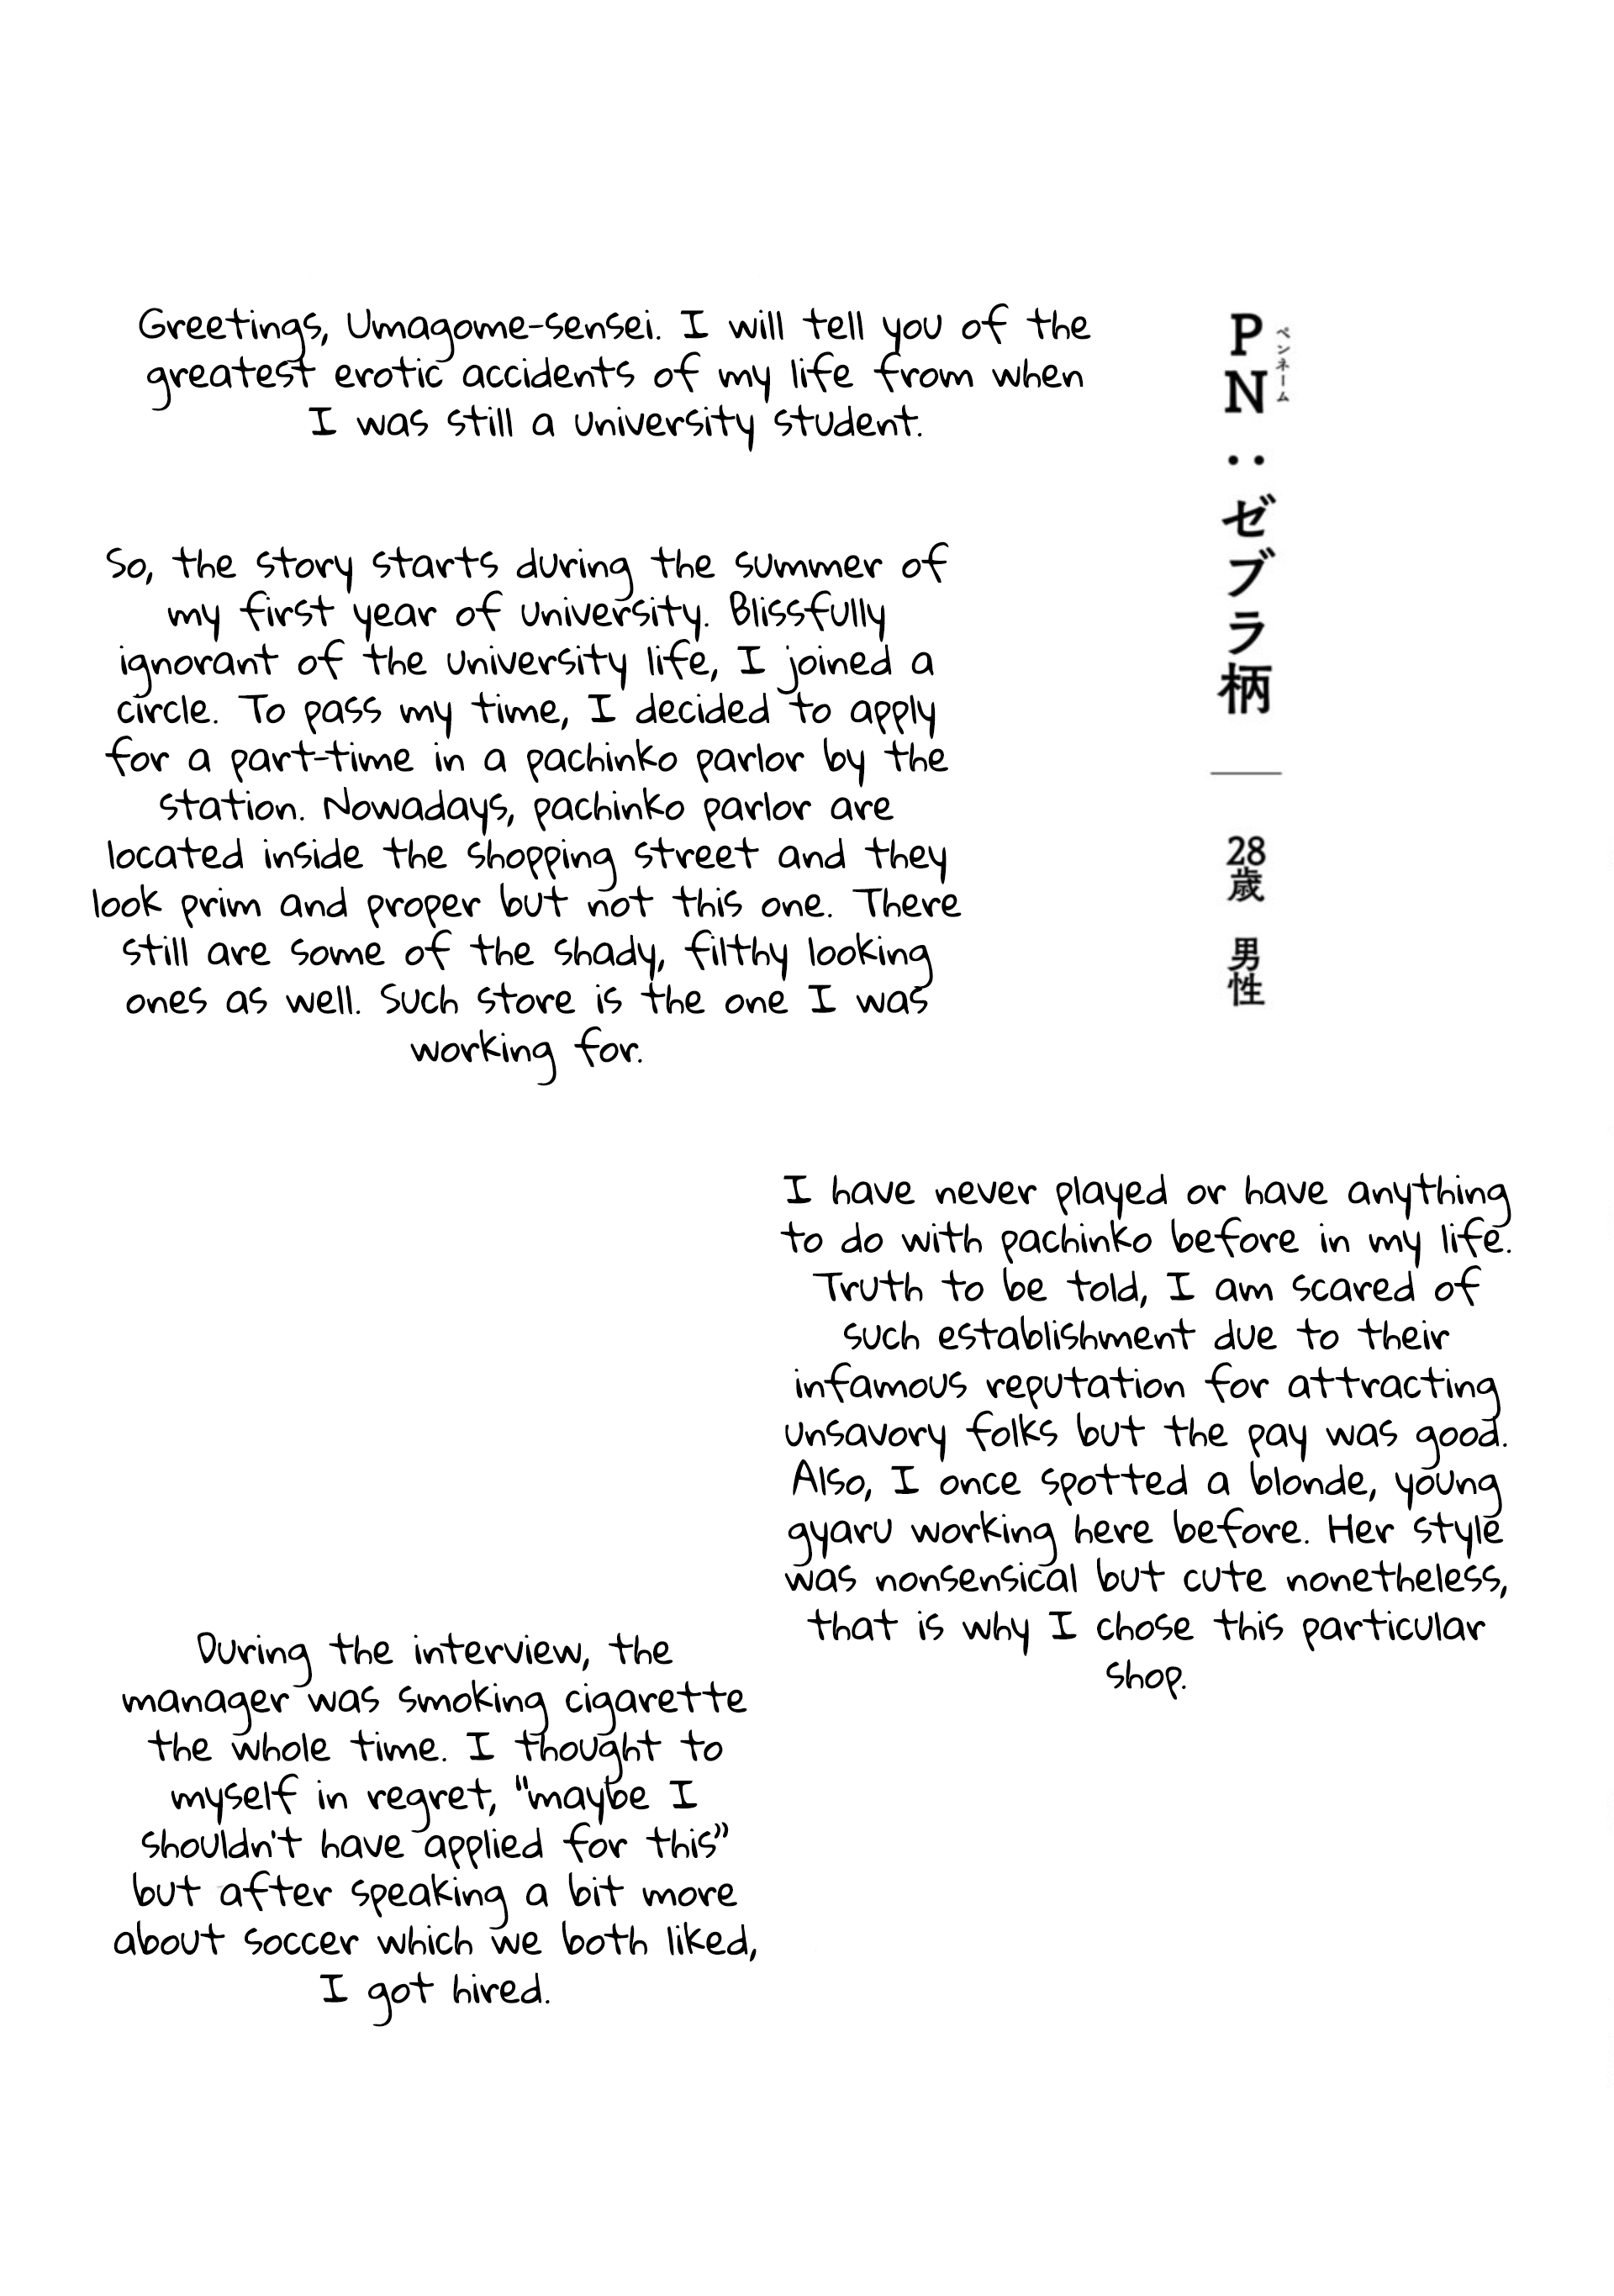 Greetings, Umagome-sensei. I will tell you of the
greatest erotic accidents of my life from when
I was still a university student.
PN：ゼブラ柄
ペンネーム
28歳 男性
So, the story starts during the summer of
my first year of university. Blissfully
ignorant of the university life, I joined a
circle. To pass my time, I decided to apply
for a part-time in a pachinko parlor by the
station. Nowadays, pachinko parlor are
located inside the shopping street and they
look prim and proper but not this one. There
still are some of the shady, filthy looking
ones as well. Such store is the one I was
working for.
I have never played or have anything
to do with pachinko before in my life.
Truth to be told, I am scared of
such establishment due to their
infamous reputation for attracting
unsavory folks but the pay was good.
Also, I once spotted a blonde, young
gyaru working here before. Her style
was nonsensical but cute nonetheless,
that is why I chose this particular
shop.
During the interview, the
manager was smoking cigarette
the whole time. I thought to
myself in regret, "maybe I
shouldn't have applied for this”
but after speaking a bit more
about soccer which we both liked,
I got hired.